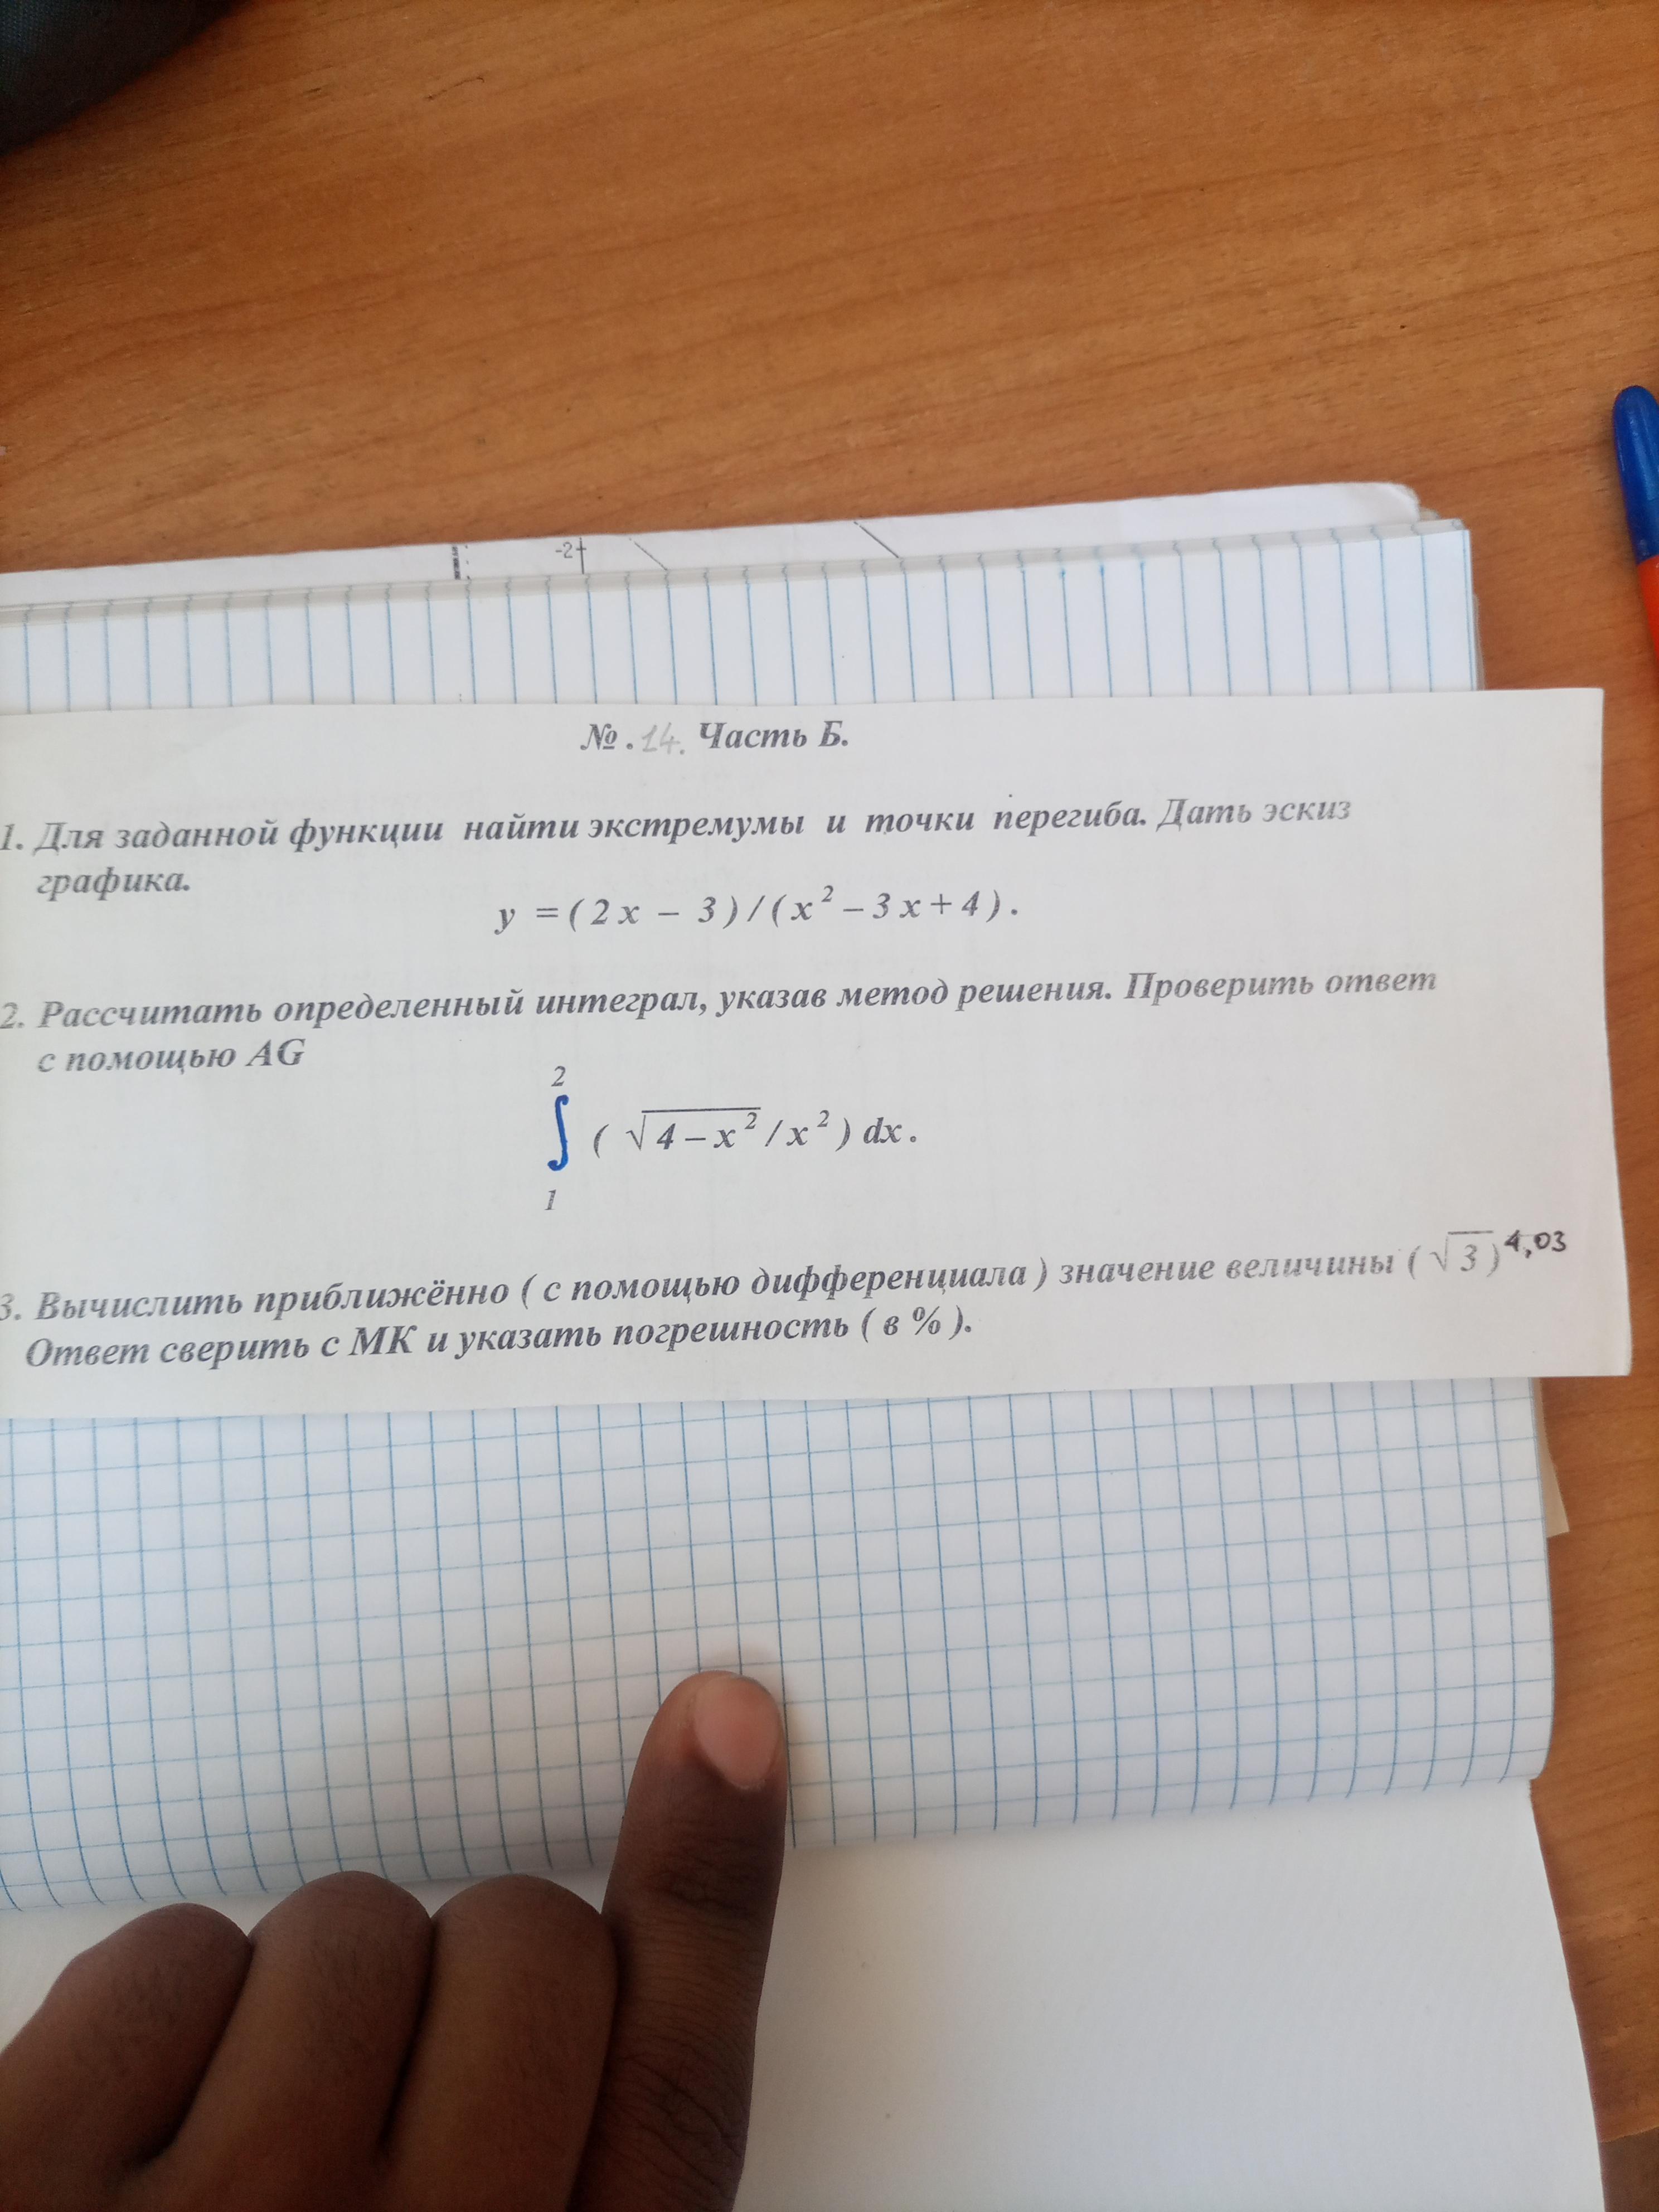 -2
№ . 14. Часть Б.
1. Для заданной функции найти экстремумы и точки перегиба. Дать эскиз
графика.
y = ( 2 x – 3 ) / ( x² – 3 x + 4 ) .
2. Рассчитать определенный интеграл, указав метод решения. Проверить ответ
с помощью AG
2
∫ ( √4 – x² / x² ) dx .
1
3. Вычислить приближённо ( с помощью дифференциала ) значение величины ( √3 )^4,03
Ответ сверить с МК и указать погрешность ( в % ).